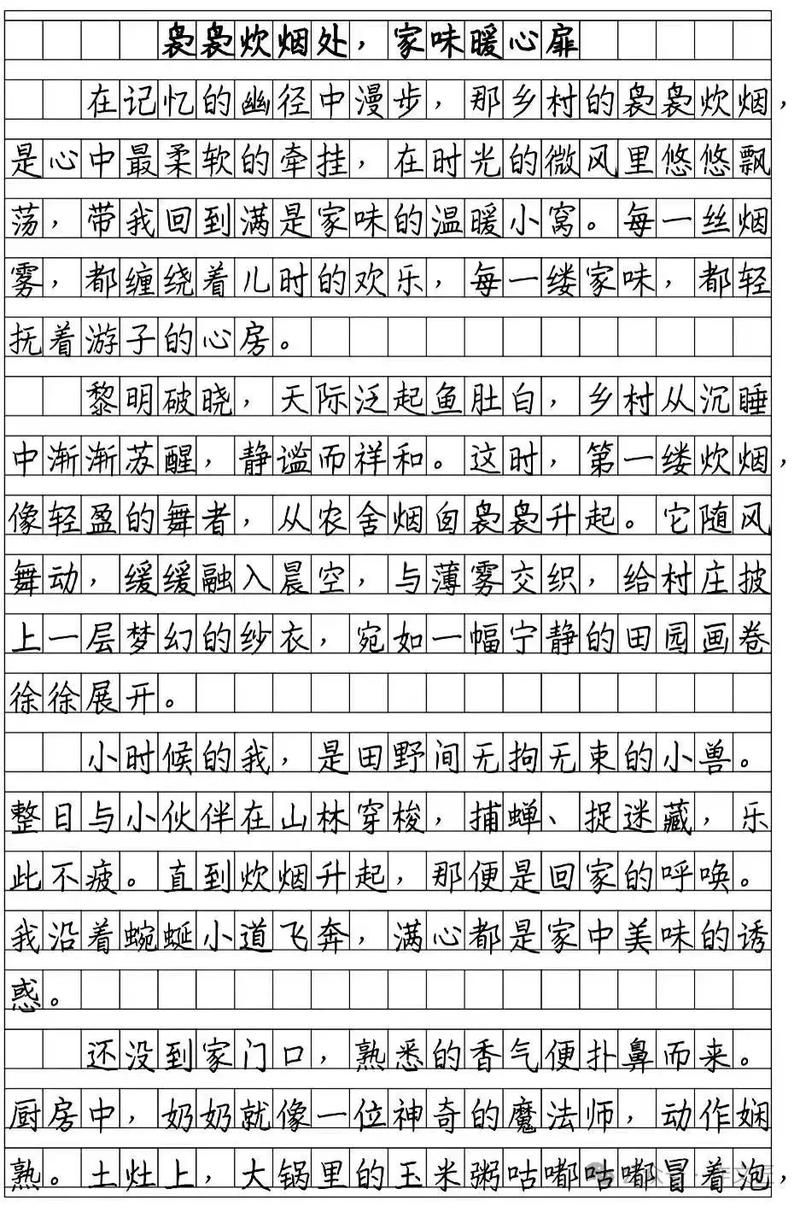 袅袅炊烟处，家味暖心扉
在记忆的幽径中漫步，那乡村的袅袅炊烟，
是心中最柔软的牵挂，在时光的微风里悠悠飘
荡，带我回到满是家味的温暖小窝。每一丝烟
雾，都缠绕着儿时的欢乐，每一缕家味，都轻
抚着游子的心房。
黎明破晓，天际泛起鱼肚白，乡村从沉睡
中渐渐苏醒，静谧而祥和。这时，第一缕炊烟，
像轻盈的舞者，从农舍烟囱袅袅升起。它随风
舞动，缓缓融入晨空，与薄雾交织，给村庄披
上一层梦幻的纱衣，宛如一幅宁静的田园画卷
徐徐展开。
小时候的我，是田野间无拘无束的小兽。
整日与小伙伴在山林穿梭，捕蝉、捉迷藏，乐
此不疲。直到炊烟升起，那便是回家的呼唤。
我沿着蜿蜒小道飞奔，满心都是家中美味的诱
惑。
还没到家门口，熟悉的香气便扑鼻而来。
厨房中，奶奶就像一位神奇的魔法师，动作娴
熟。土灶上，大锅里的玉米粥咕嘟咕嘟冒着泡，